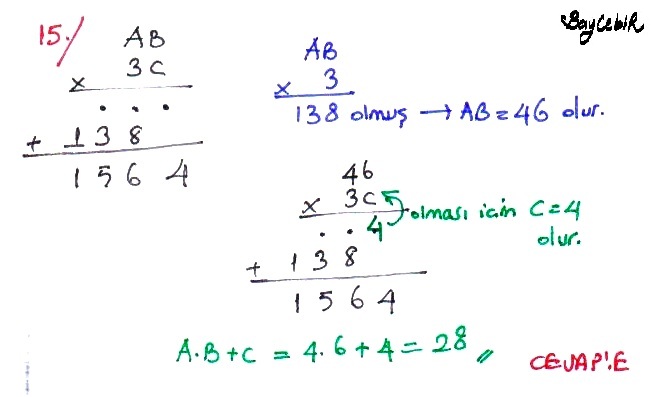 BayCebiR
15./
AB
x 3C
. . .
+ 138
1564
AB
x 3
138 olmuş → AB=46 olur.
46
x 3C
. . 4 olması için C=4 olur.
+ 138
1564
A.B+C = 4.6+4=28 //
CEVAP:E